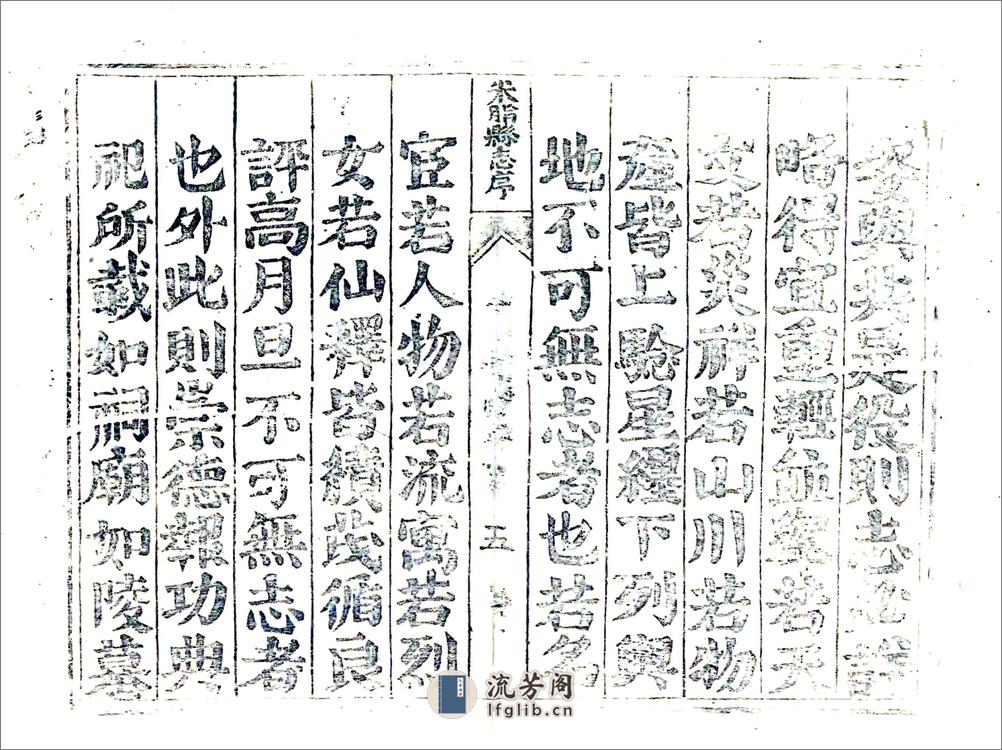 與共是役則志詳
略得宜重輕並若天
文若災祥若山川若物
產皆上驗星纏下列輿
地不可無志者也若名
米脂縣志序
五
宦若人物若流寓若列
女若仙釋皆績茂循良
評高月旦不可無志者
也外此則崇德報功典
祀所載如祠廟如陵墓
流芳阁
lfglib.cn